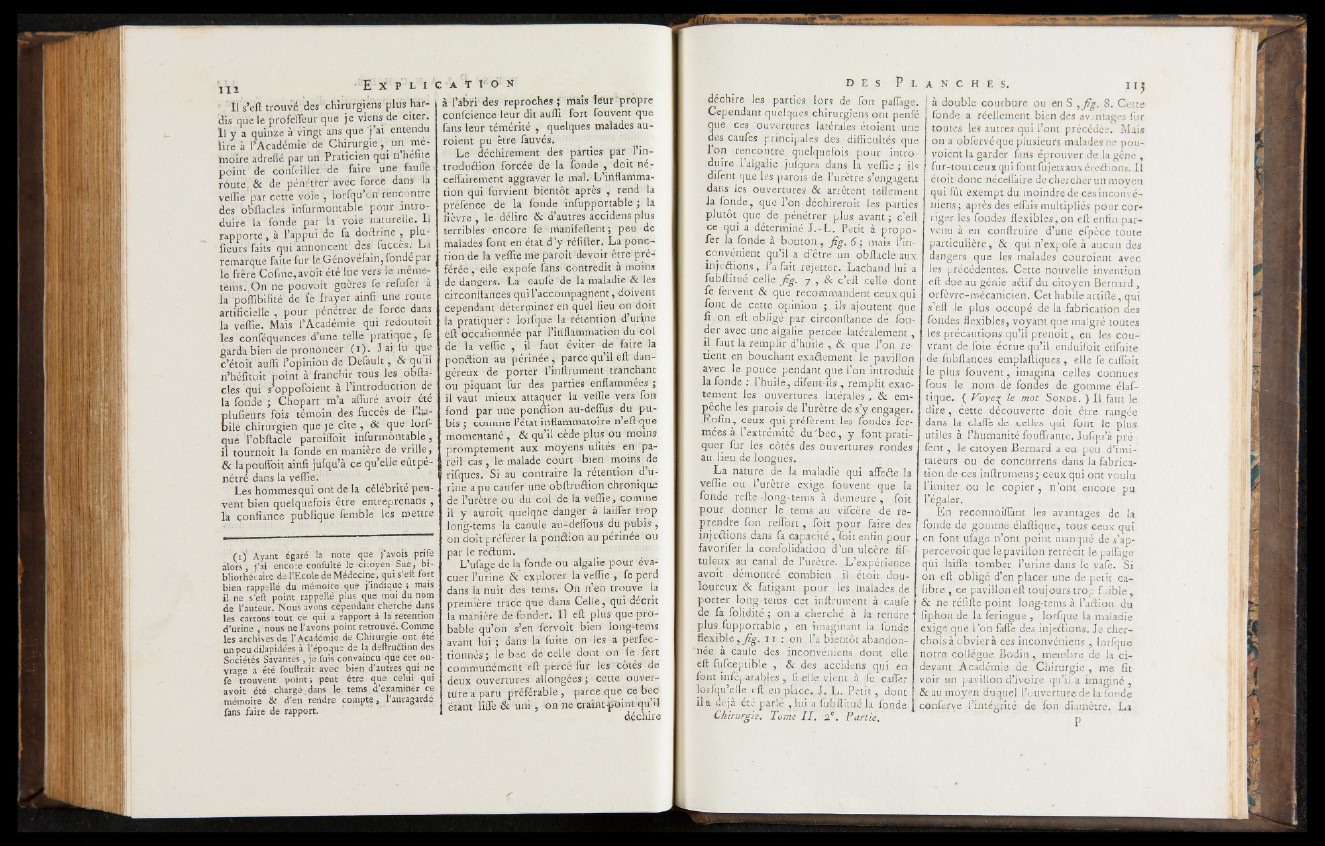 112
EXPLICATION
Il s'eſt trouvé des chirurgiens plus har-
dis que le profeſſeur que je viens de citer.
Il y a quinze à vingt ans que j'ai entendu
lire à l'Académie de Chirurgie, un mé-
moire adreſſé par un Praticien qui n'héſite
point de conſeiller de faire une fauſſe
route & de pénétrer avec force dans la
veſſie par cette voie, lorſqu'on rencontre
des obſtacles inſurmontable pour intro-
duire la ſonde par la voie naturelle. Il
rapporte, à l'appui de ſa doctrine, plu-
ſieurs faits qui annoncent des ſuccès. La
remarque faite ſur le Génovéfain, fondé par
le frère Coſme, avoit été lue vers le même-
tems. On ne pouvoit guères ſe refuſer à
la poſſibilité de ſe frayer ainſi une route
artificielle, pour pénétrer de force dans
la veſſie. Mais l'Académie qui redoutoit
les conſéquences d'une telle pratique, ſe
garda bien de prononcer (1). J'ai ſu que
c'étoit auſſi l'opinion de Default, & qu'il
n'héſitoit point à franchir tous les obſta-
cles qui s'oppoſoient à l'introduction de
la ſonde; Chopart m'a aſſuré avoir été
pluſieurs fois témoin des ſuccès de l'ha-
bile chirurgien que je cite, & que lorſ-
que l'obſtacle paroiſſoit inſurmontable,
il tournoit la ſonde en manière de vrille,
& la pouſſoit ainſi juſqu'à ce qu'elle eût pé-
nétré dans la veſſie.
Les hommes qui ont de la célébrité peu-
vent bien quelquefois être entreprenans,
la confiance publique ſemble les mettre
(1) Ayant égaré la note que j'avois priſe
alors, j'ai encore conſulté le citoyen Sue, bi-
bliothécaire de l'Ecole de Médecine, qui s'eſt fort
bien rappellé du mémoire que j'indique; mais
il ne s'eſt point rappellé plus que moi du nom
de l'auteur. Nous avons cependant cherché dans
les cartons tout ce qui a rapport à la rétention
d'urine, nous ne l'avons point retrouvé. Comme
les archives de l'Académie de Chirurgie ont été
un peu dilapidées à l'époque de la deſtruction des
Sociétés Savantes, je ſuis convaincu que cet ou-
vrage a été ſouſtrait avec bien d'autres qui ne
ſe trouvent point; peut être que celui qui
avoit été chargé dans le tems d'examiner ce
mémoire & d'en rendre compte, l'auragardé
ſans faire de rapport.
à l'abri des reproches; mais leur propre
conſcience leur dit auſſi fort ſouvent que
ſans leur témérité, quelques malades au-
roient pu être ſauvés.
Le déchirement des parties par l'in-
troduction forcée de la ſonde, doit né-
ceſſairement aggraver le mal. L'inflamma-
tion qui ſurvient bientôt après, rend la
préſence de la ſonde inſupportable; la
fièvre, le délire & d'autres accidens plus
terribles encore ſe manifeſtent; peu de
malades ſont en état d'y réſiſter. La ponc-
tion de la veſſie me paroît devoir être pré-
férée, elle expoſe ſans contredit à moins
de dangers. La cauſe de la maladie & les
circonſtances qui l'accompagnent, doivent
cependant déterminer en quel lieu on doit
la pratiquer: lorſque la rétention d'urine
eſt occaſionnée par l'inflammation du col
de la veſſie, il faut éviter de faire la
ponction au périnée, parce qu'il eſt dan-
géreux de porter l'inſtrument tranchant
ou piquant ſur des parties enflammées;
il vaut mieux attaquer la veſſie vers ſon
fond par une ponction au-deſſus du pu-
bis; comme l'état inflammatoire n'eſt que
momentané, & qu'il cède plus ou moins
promptement aux moyens uſités en pa-
reil cas, le malade court bien moins de
riſques. Si au contraire la rétention d'u-
rine a pu cauſer une obſtruction chronique
de l'urètre ou du col de la veſſie, comme
il y auroit quelque danger à laiſſer trop
long-tems la canule au-deſſous du pubis,
on doit préférer la ponction au périnée ou
par le rectum.
L'uſage de la ſonde ou algalie pour éva-
cuer l'urine & explorer la veſſie, ſe perd
dans la nuit des tems. On n'en trouve la
première trace que dans Celſe, qui décrit
la manière de ſonder. Il eſt plus que pro-
bable qu'on s'en ſervoit bien long-tems
avant lui; dans la ſuite on les a perfec-
tionnés; le bec de celle dont on ſe ſert
communément eſt percé ſur les côtés de
deux ouvertures allongées; cette ouver-
ture a paru préférable, parce que ce bec
étant liſſe & uni, on ne craint point qu'il
déchire
DES PLANCHES.
113
déchire les parties lors de ſon paſſage.
Cependant quelques chirurgiens ont penſé
que ces ouvertures latérales étoient une
des cauſes principales des difficultés que
l'on rencontre quelquefois pour intro-
duire l'algalie juſques dans la veſſie; ils
diſent que les parois de l'urètre s'engagent
dans les ouvertures & arrêtent tellement
la ſonde, que l'on déchireroit les parties
plutôt que de pénétrer plus avant; c'eſt
ce qui a déterminé J.-L. Petit à propo-
ſer la ſonde à bouton, fig. 6; mais l'in-
convénient qu'il a d'être un obſtacle aux
injections, l'a fait rejetter. Lachaud lui a
ſubſtitué celle fig. 7, & c'eſt celle dont
ſe ſervent & que recommandent ceux qui
ſont de cette opinion; ils ajoutent que
ſi on eſt obligé par circonſtance de ſon-
der avec une algalie percée latéralement,
il faut la remplir d'huile, & que l'on re-
tient en bouchant exactement le pavillon
avec le pouce pendant que l'on introduit
la ſonde: l'huile, diſent-ils, remplit exac-
tement les ouvertures latérales, & em-
pêche les parois de l'urètre de s'y engager.
Enfin, ceux qui préfèrent les ſondes fer-
mées à l'extrémité du bec, y font prati-
quer ſur les côtés des ouvertures rondes
au lieu de longues.
La nature de la maladie qui affecte la
veſſie ou l'urètre exige ſouvent que la
ſonde reſte long-tems à demeure, ſoit
pour donner le tems au viſcère de re-
prendre ſon reſſort, ſoit pour faire des
injections dans ſa capacité, ſoit enfin pour
favoriſer la conſolidation d'un ulcère fiſ-
tuleux au canal de l'urètre. L'expérience
avoit démontré combien il étoit dou-
loureux & fatigant pour les malades de
porter long-tems cet inſtrument à cauſe
de ſa ſolidité; on a cherché à la rendre
plus ſupportable, en imaginant la ſonde
flexible, fig. 11: on l'a bientôt abandon-
née à cauſe des inconvéniens dont elle
eſt ſuſceptible, & des accidens qui en
ſont inſéparables, ſi elle vient à ſe caſſer
lorſqu'elle eſt en place. J. L. Petit, dont
il a déjà été parlé, lui a ſubſtitué la ſonde
Chirurgie. Tome II. 2e. Partie.
à double courbure ou en S, fig. 8. Cette
ſonde a réellement bien des avantages ſur
toutes les autres qui l'ont précédée. Mais
on a obſervé que pluſieurs malades ne pou-
voient la garder ſans éprouver de la gêne,
ſur-tout ceux qui ſont ſujets aux érections. Il
étoit donc néceſſaire de chercher un moyen
qui fût exempt du moindre de ces inconvé-
niens; après des eſſais multipliés pour cor-
riger les ſondes flexibles, on eſt enfin par-
venu à en conſtruire d'une eſpèce toute
particulière, & qui n'expoſe à aucun des
dangers que les malades couroient avec
les précédentes. Cette nouvelle invention
eſt due au génie actif du citoyen Bernard,
orfèvre-mécanicien. Cet habile artiſte, qui
s'eſt le plus occupé de la fabrication des
ſondes flexibles, voyant que malgré toutes
les précautions qu'il prenoit, en les cou-
vrant de ſoie écrue qu'il enduiſoit enſuite
de ſubſtances emplaſtiques, elle ſe caſſoit
le plus ſouvent, imagina celles connues
ſous le nom de ſondes de gomme élaſ-
tique. (Voyez le mot SONDE.) Il faut le
dire, cette découverte doit être rangée
dans la claſſe de celles qui ſont le plus
utiles à l'humanité ſouffrante. Juſqu'à pré-
ſent, le citoyen Bernard a eu peu d'imi-
tateurs ou de concurrens dans la fabrica-
tion de ces inſtrumens; ceux qui ont voulu
l'imiter ou le copier, n'ont encore pu
l'égaler.
En reconnoiſſant les avantages de la
ſonde de gomme élaſtique, tous ceux qui
en font uſage n'ont point manqué de s'ap-
percevoir que le pavillon retrécit le paſſage
qui laiſſe tomber l'urine dans le vaſe. Si
on eſt obligé d'en placer une de petit ca-
libre, ce pavillon eſt toujours trop foible,
& ne réſiſte point long-tems à l'action du
ſiphon de la ſeringue, lorſque la maladie
exige que l'on faſſe des injections. Je cher-
chois à obvier à ces inconvéniens, lorſque
notre collégue Bodin, membre de la ci-
devant Académie de Chirurgie, me fit
voir un pavillon d'ivoire qu'il a imaginé,
& au moyen duquel l'ouverture de la ſonde
conſerve l'intégrité de ſon diamètre. La
P